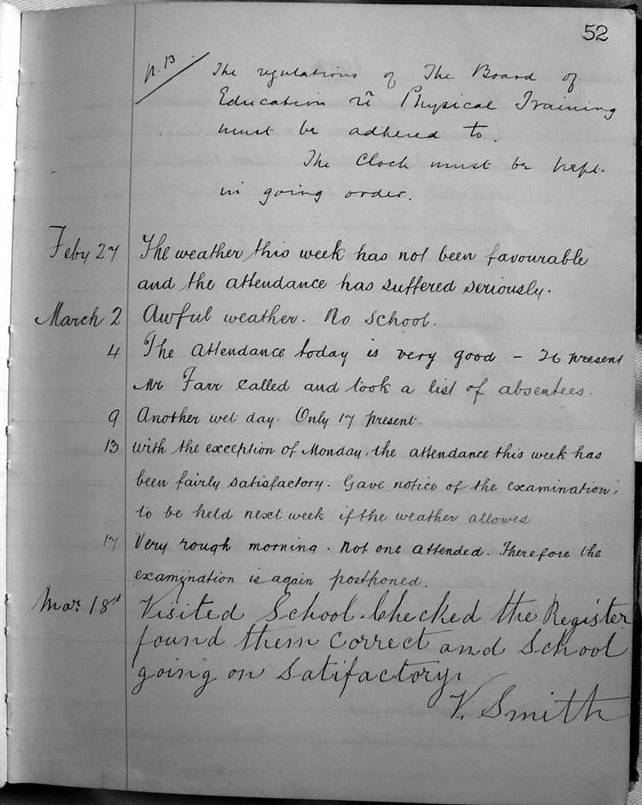 52
p. 13
The regulations of The Board of
Education rē Physical Training
must be adhered to.
The Clock must be kept
in going order.
Feby 27 The weather this week has not been favourable
and the attendance has suffered seriously.
March 2 Awful weather. No School.
4 The Attendance today is very good – 26 present
Mr Farr called and took a list of absentees.
9 Another wet day. Only 17 present.
13 With the exception of Monday, the attendance this week has
been fairly satisfactory. Gave notice of the examination,
to be held next week if the weather allowed
17 Very rough morning. Not one attended. Therefore the
examination is again postponed.
Mar. 18th Visited School. Checked the Register
found them correct and School
going on Satifactory.
V. Smith